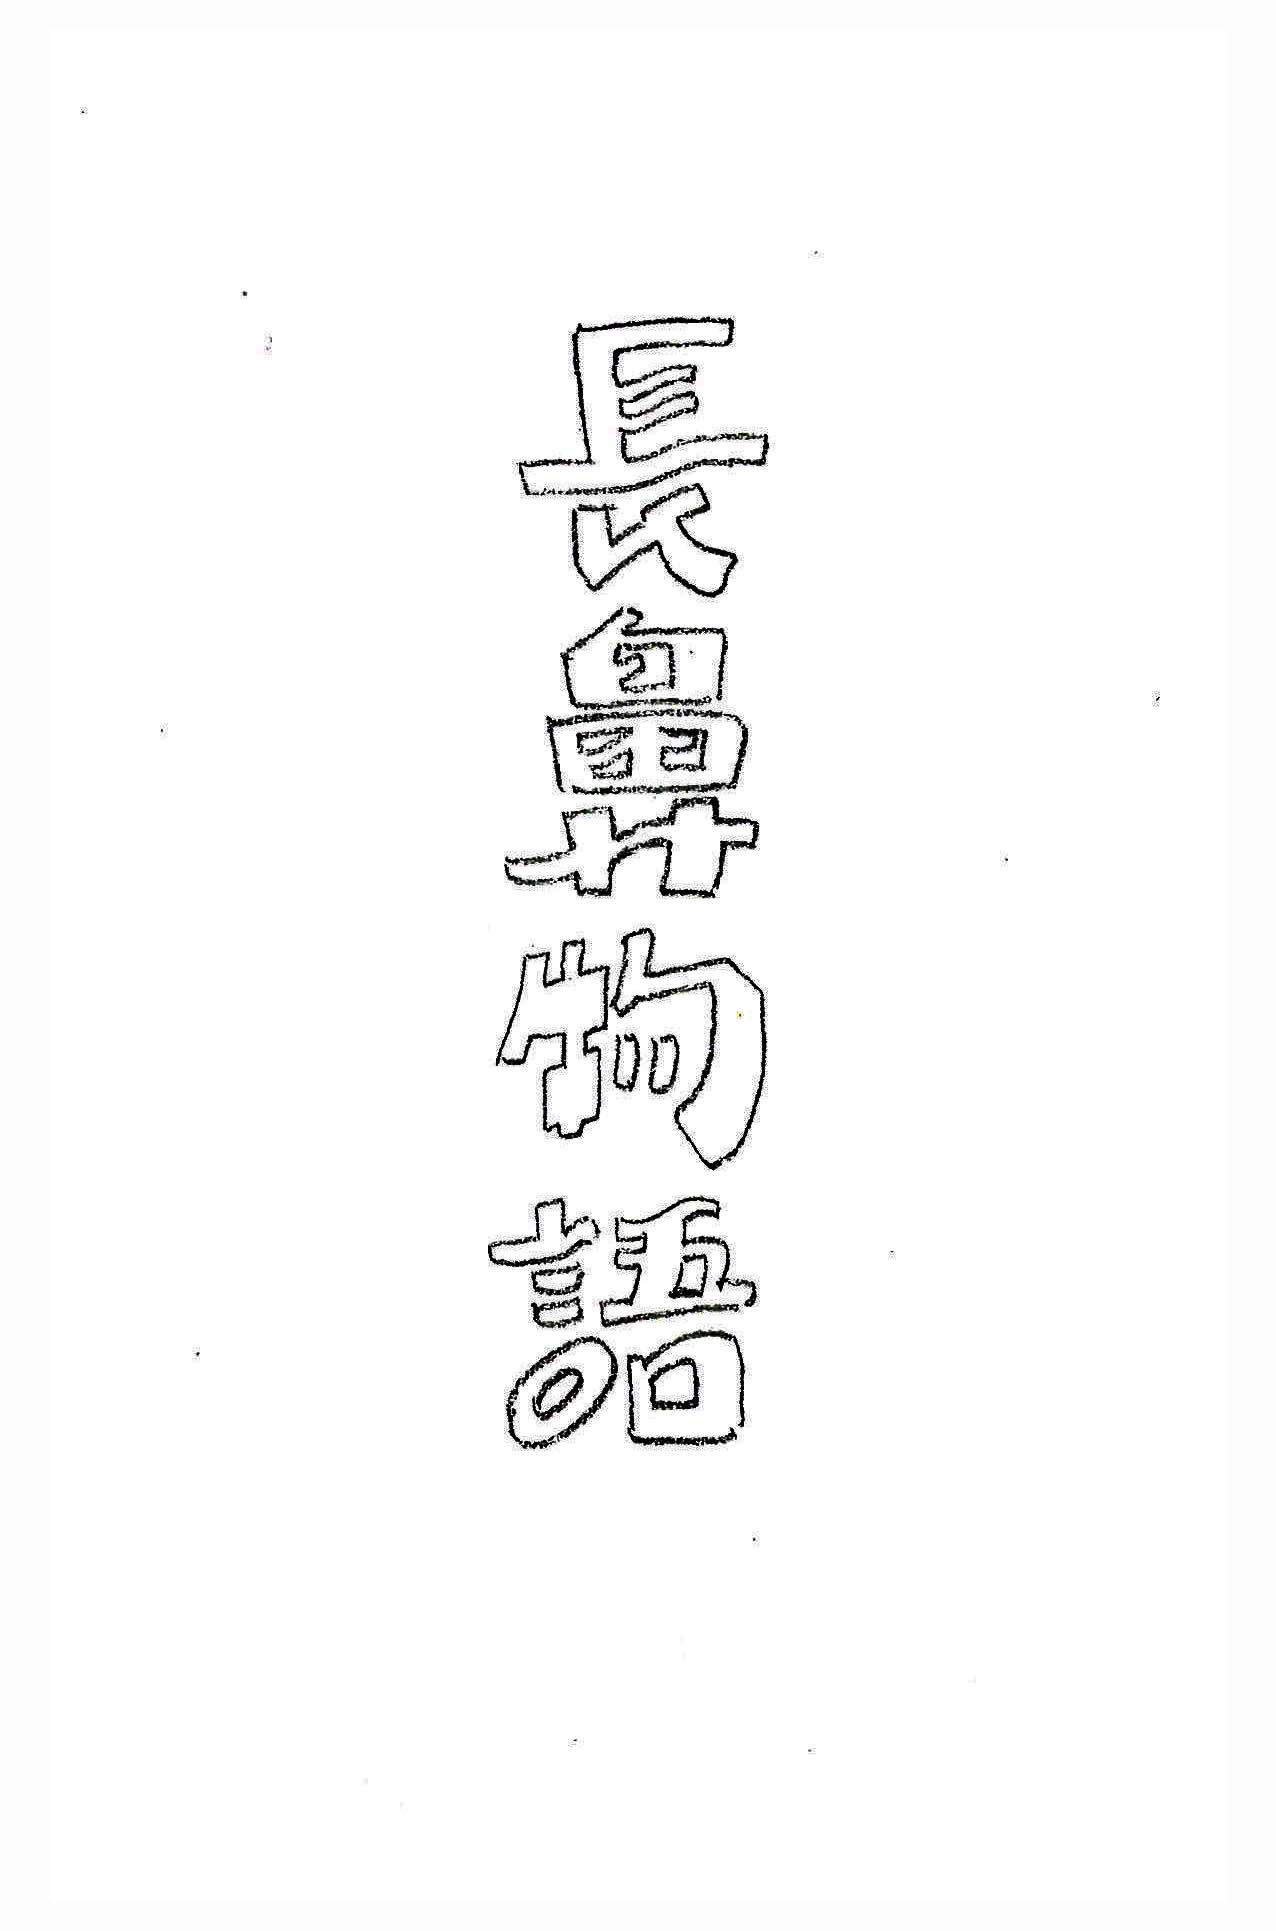 長鼻物語